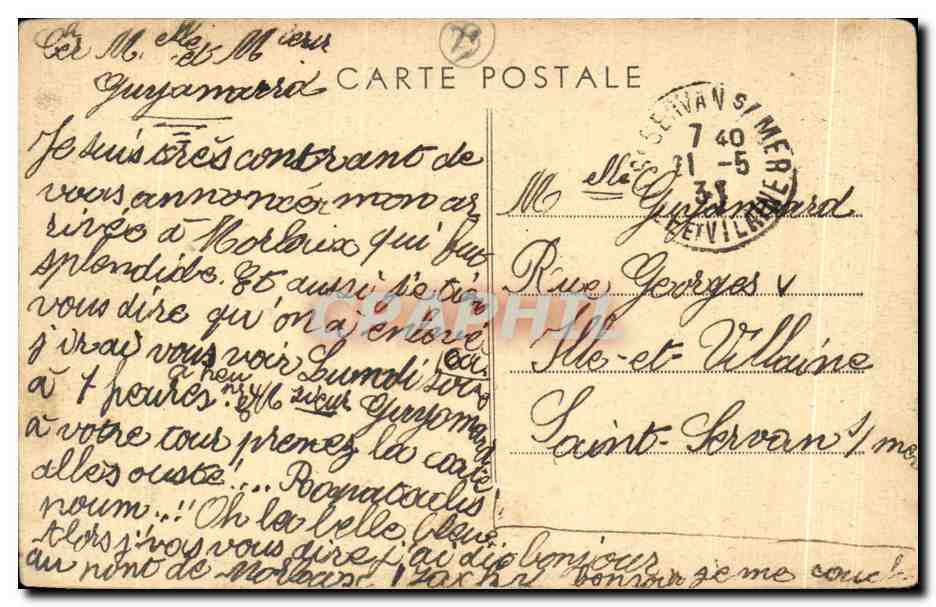 Cer Melle et Mieur
Guyamarrd
CARTE POSTALE
Je suis très contrant de
vous annoncér mon ar
rivée à Morlaix qui fut
splendide. Et aussi je
vous dire qu'on a enlevé
j'irai vous voir Lundi
à 7 heures à peu
et Msieur Guyamard
à votre tour prenez la carte
alles ouste!....
noum..!! Oh la belle bleue
Alors j'vas vous dire j'ai dis bonjour
au pont de Morlaix
bonsoir je me couche
29
ST SERVAN S/ MER
7 40
21 -5
33
ILLE ET VILAINE
Melle Guyamard
Rue Georges V
Ille-et-Villaine
Saint-Servan s/mer
CPAPHIL